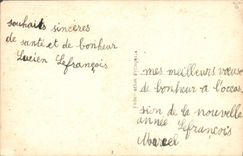 souhaits sincères
de santé et de bonheur
Lucien Lefrançois
mes meilleurs vœux
de bonheur a l'occa
sion de la nouvelle
année Lefrancois
Marcel